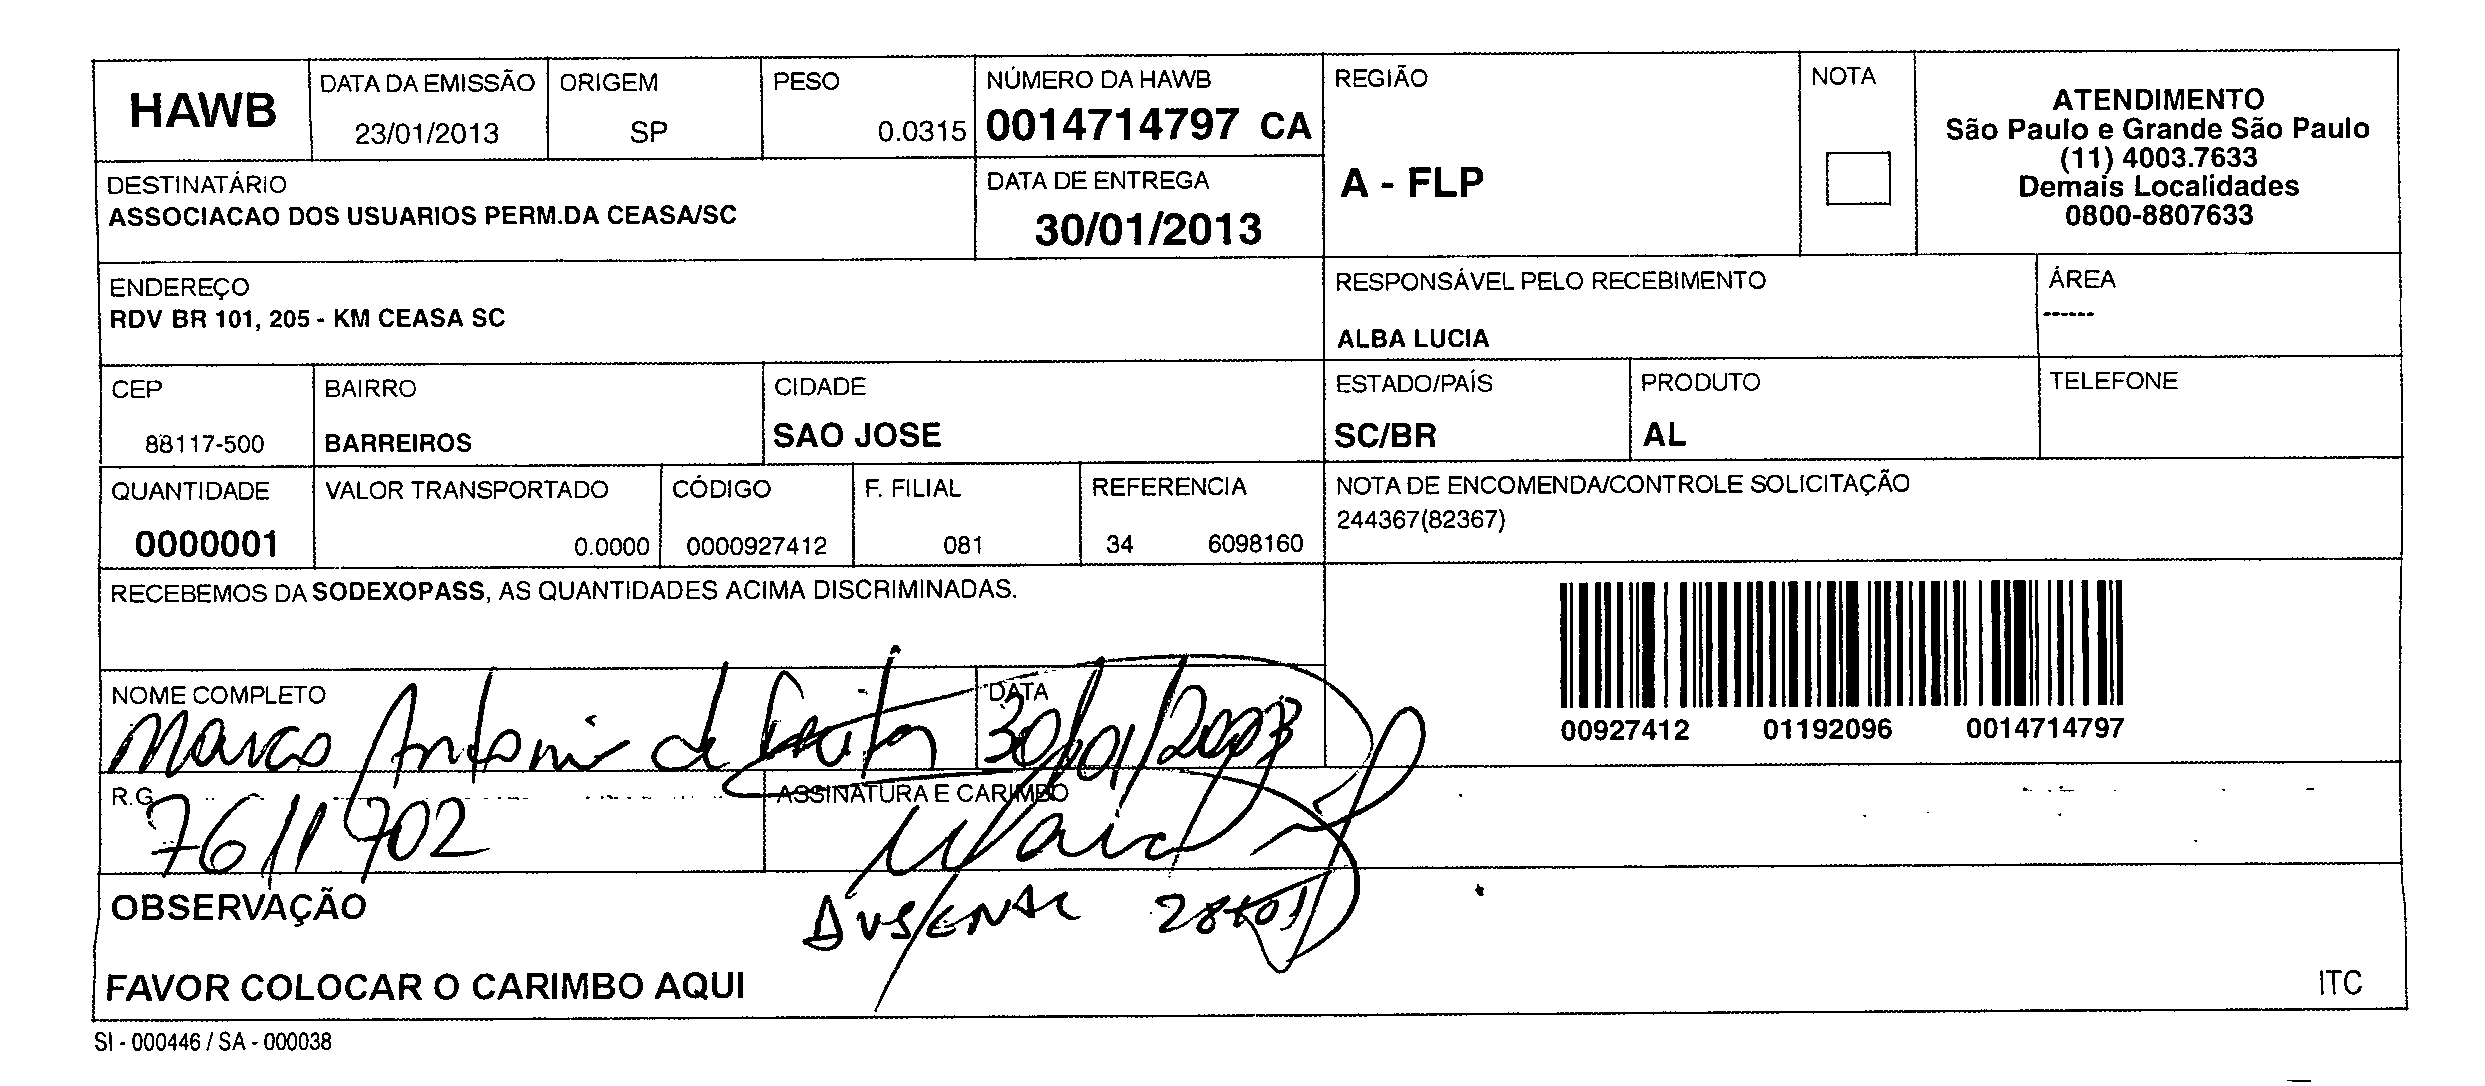 HAWB
DATA DA EMISSÃO
23/01/2013
ORIGEM
SP
PESO
0.0315
NÚMERO DA HAWB
0014714797 CA
REGIÃO
A - FLP
NOTA
ATENDIMENTO
São Paulo e Grande São Paulo
(11) 4003.7633
Demais Localidades
0800-8807633
DESTINATÁRIO
ASSOCIACAO DOS USUARIOS PERM.DA CEASA/SC
DATA DE ENTREGA
30/01/2013
ENDEREÇO
RDV BR 101, 205 - KM CEASA SC
RESPONSÁVEL PELO RECEBIMENTO
ALBA LUCIA
ÁREA
------
CEP
88117-500
BAIRRO
BARREIROS
CIDADE
SAO JOSE
ESTADO/PAÍS
SC/BR
PRODUTO
AL
TELEFONE
QUANTIDADE
0000001
VALOR TRANSPORTADO
0.0000
CÓDIGO
0000927412
F. FILIAL
081
REFERENCIA
34 6098160
NOTA DE ENCOMENDA/CONTROLE SOLICITAÇÃO
244367(82367)
RECEBEMOS DA SODEXOPASS, AS QUANTIDADES ACIMA DISCRIMINADAS.
00927412 01192096 0014714797
NOME COMPLETO
Marco Antonio de
DATA
R.G.
7611902
ASSINATURA E CARIMBO
OBSERVAÇÃO
FAVOR COLOCAR O CARIMBO AQUI
ITC
SI - 000446 / SA - 000038